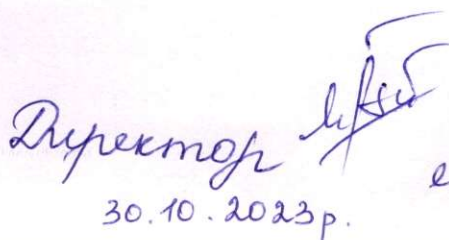 Директор
30.10.2023р.